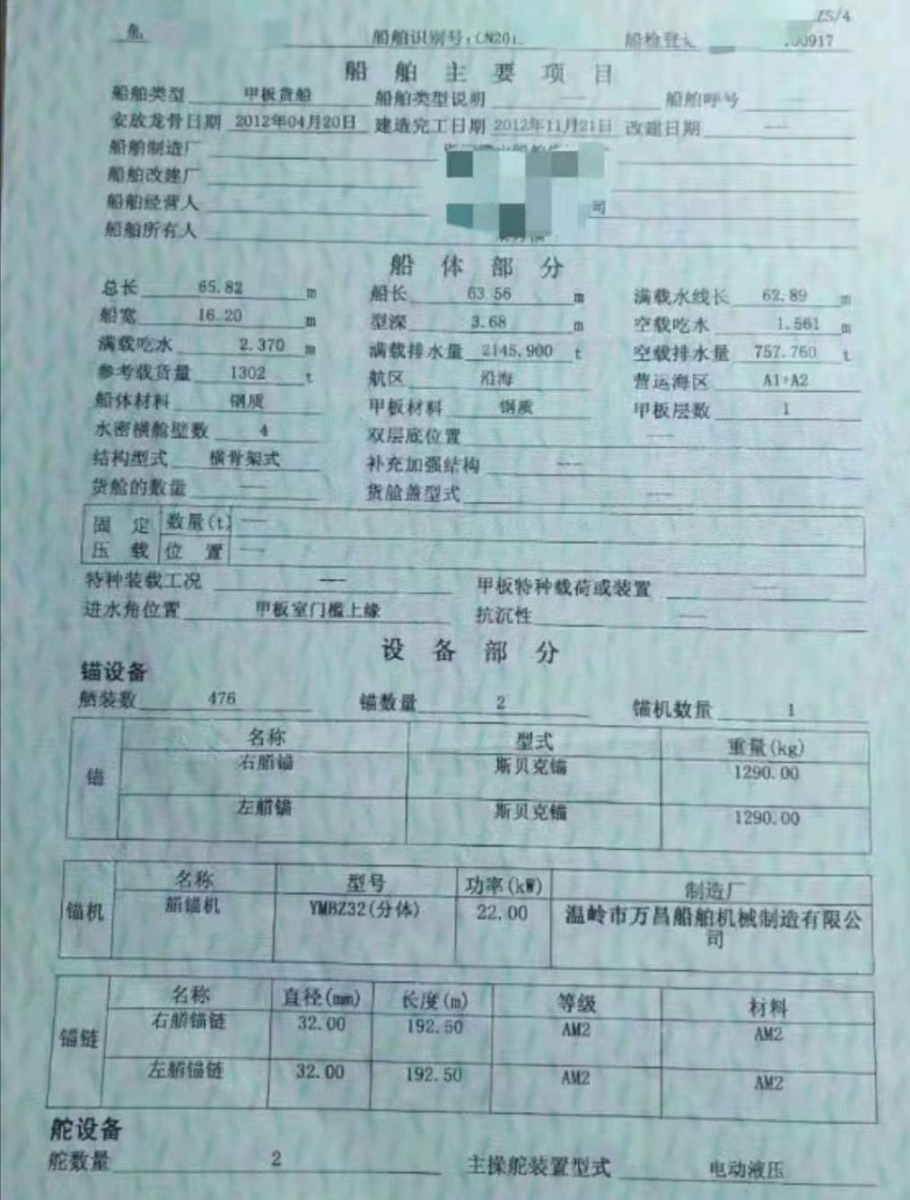 ZS/4
船舶识别号:CN20
船检登
00917
船舶主要项目
船舶类型 甲板货船 船舶类型说明 --- 船舶呼号 ---
安放龙骨日期 2012年04月20日 建造完工日期 2012年11月21日 改建日期 ---
船舶制造厂
船舶改建厂
船舶经营人 司
船舶所有人
船体部分
总长 65.82 m 船长 63.56 m 满载水线长 62.89 m
船宽 16.20 m 型深 3.68 m 空载吃水 1.561 m
满载吃水 2.370 m 满载排水量 2145.900 t 空载排水量 757.760 t
参考载货量 1302 t 航区 沿海 营运海区 A1+A2
船体材料 钢质 甲板材料 钢质 甲板层数 1
水密横舱壁数 4 双层底位置 ---
结构型式 横骨架式 补充加强结构 ---
货舱的数量 --- 货舱盖型式 ---
固定压载 数量(t) ---
位置 ---
特种装载工况 --- 甲板特种载荷或装置 ---
进水角位置 甲板室门槛上缘 抗沉性 ---
设备部分
锚设备
舾装数 476 锚数量 2 锚机数量 1
锚 名称 型式 重量(kg)
右艏锚 斯贝克锚 1290.00
左艏锚 斯贝克锚 1290.00
锚机 名称 型号 功率(kW) 制造厂
艏锚机 YMBZ32(分体) 22.00 温岭市万昌船舶机械制造有限公
司
锚链 名称 直径(mm) 长度(m) 等级 材料
右艏锚链 32.00 192.50 AM2 AM2
左艏锚链 32.00 192.50 AM2 AM2
舵设备
舵数量 2 主操舵装置型式 电动液压